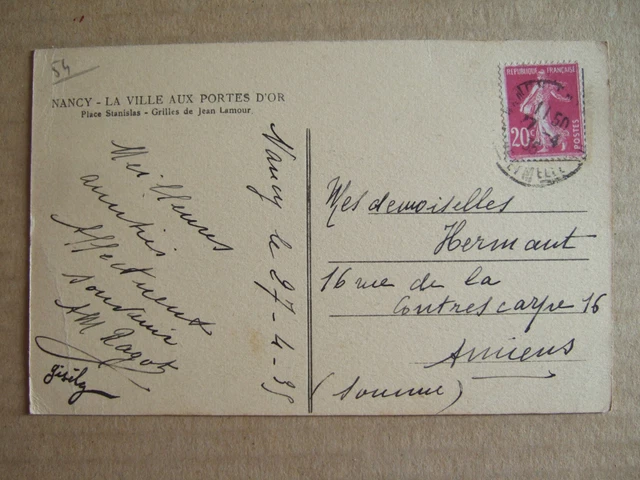 54
NANCY - LA VILLE AUX PORTES D'OR
Place Stanislas - Grilles de Jean Lamour.
Nancy le 27-4-35
Meilleures
amitiés
Affectueux
souvenir
AM Ragot
REPUBLIQUE FRANÇAISE
20c
POSTES
Mesdemoiselles
Hermant
16 rue de la
Contrescarpe 16
Amiens
(Somme)